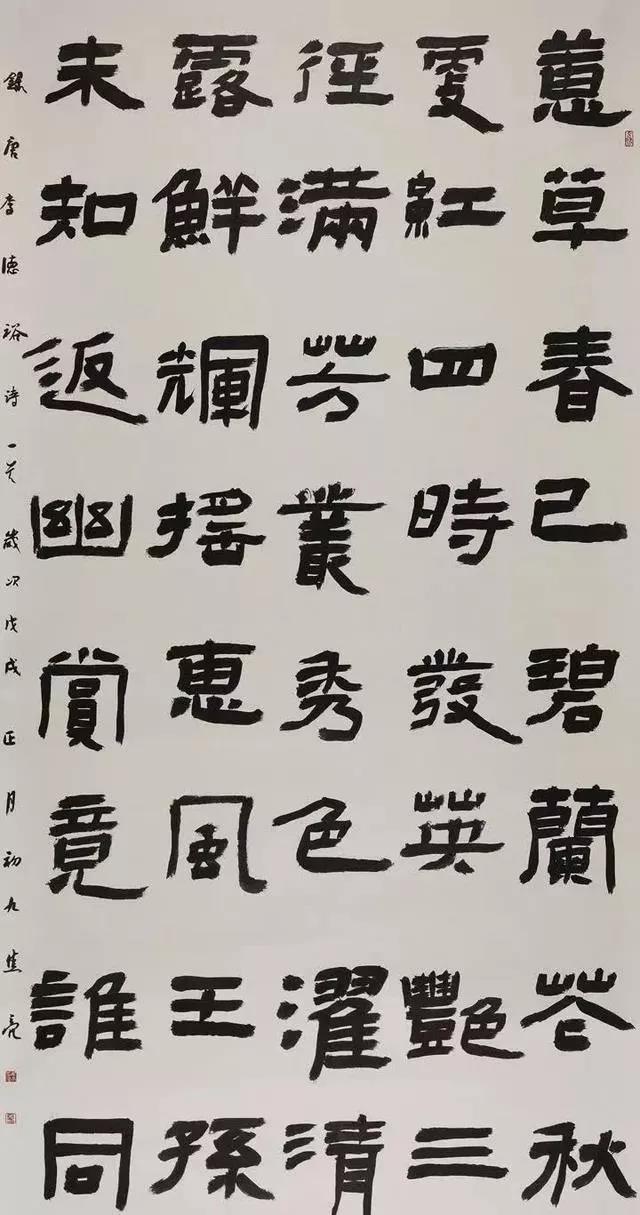 蕙草春已碧蘭花秋
更紅四時發英艷三
徑滿芳叢秀色濯清
露鮮輝搖惠風王孫
未知返幽賞竟誰同
錄唐李德裕詩一首歲次戊戌正月初九焦亮